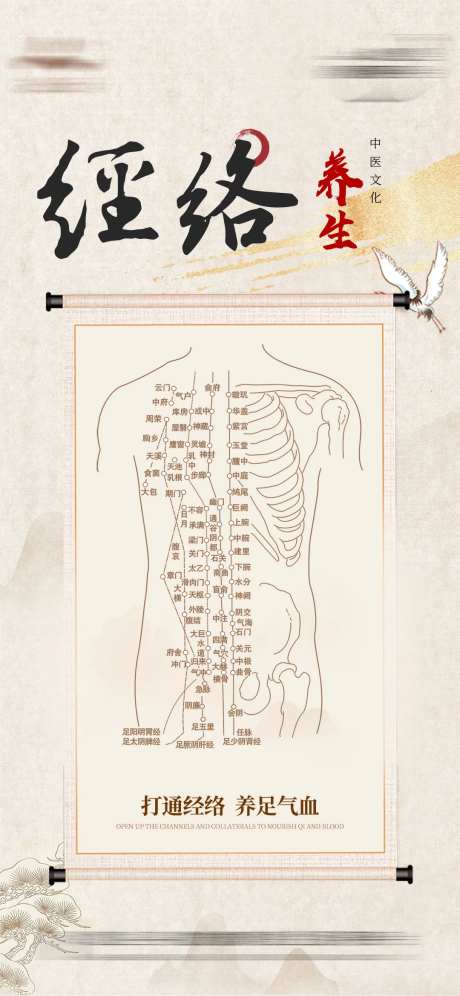 經络
养生
中医文化
云门
气户
俞府
璇玑
中府
库房
或中
华盖
周荣
屋翳
神藏
紫宫
胸乡
膺窗
灵墟
玉堂
天溪
天池
乳中
神封
膻中
食窦
乳根
步廊
中庭
大包
期门
鸠尾
幽门
巨阙
日月
不容
通谷
上脘
承满
阴都
中脘
梁门
建里
腹哀
关门
石关
下脘
太乙
商曲
章门
滑肉门
水分
大横
天枢
肓俞
神阙
外陵
阴交
腹结
中注
气海
大巨
石门
水道
四满
府舍
气穴
关元
冲门
归来
大赫
中极
气冲
横骨
曲骨
急脉
阴廉
会阴
足五里
足阳明胃经
任脉
足太阴脾经
足厥阴肝经
足少阴肾经
打通经络 养足气血
OPEN UP THE CHANNELS AND COLLATERALS TO NOURISH QI AND BLOOD